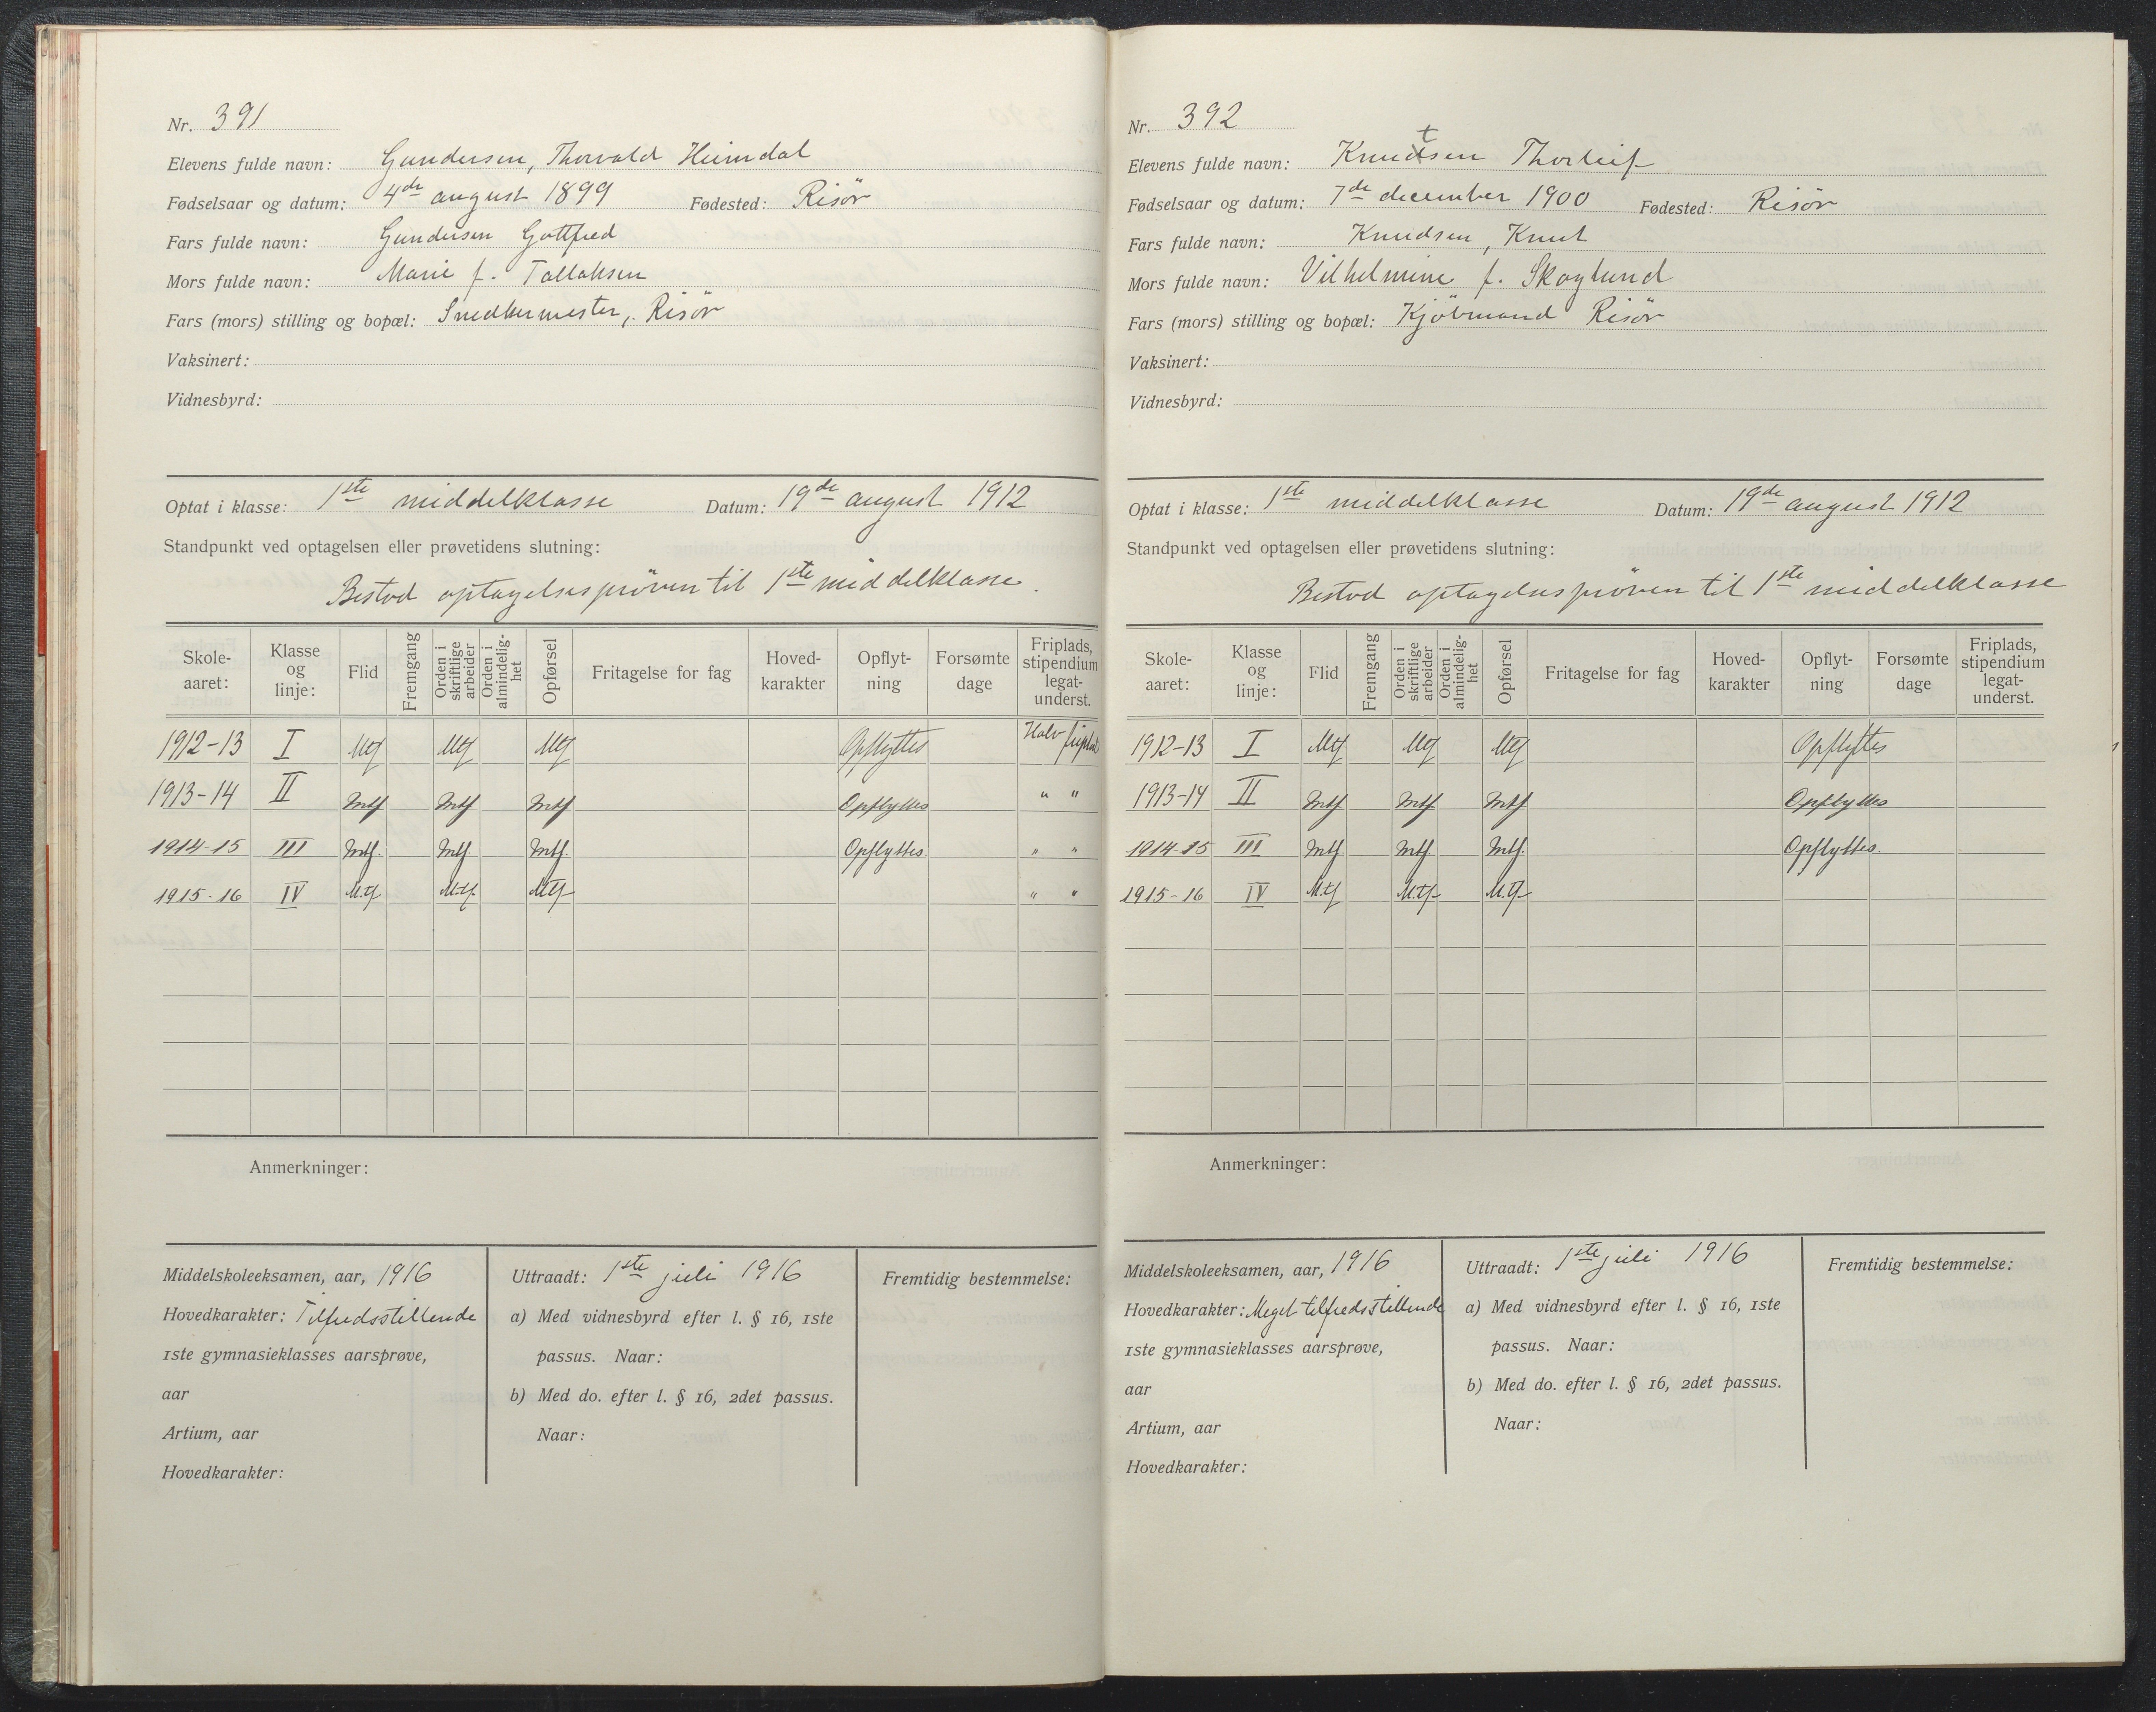 Nr. 391
Elevens fulde navn: Gundersen, Thorvald Heimdal
Fødselsaar og datum: 4de august 1899 Fødested: Risör
Fars fulde navn: Gundersen Gottfred
Mors fulde navn: Marie f. Tallaksen
Fars (mors) stilling og bopæl: Snedkermester, Risör
Vaksinert:
Vidnesbyrd:
Optat i klasse: 1ste middelklasse Datum: 19de august 1912
Standpunkt ved optagelsen eller prøvetidens slutning:
Bestod optagelsespröven til 1ste middelklasse.
Skole-aaret: Klasse og linje: Flid Fremgang Orden i skriftlige arbeider Orden i almindelig-het Opførsel Fritagelse for fag Hoved-karakter Opflyt-ning Forsømte dage Friplads, stipendium legat-underst.
1912-13 I Mtf Mtf Mtf Opflyttes Halv friplads
1913-14 II Mtf Mtf Mtf Opflyttes " "
1914-15 III Mtf. Mtf. Mtf. Opflyttes. " "
1915-16 IV M.tf M.tf. M.tf " "
Anmerkninger:
Middelskoleeksamen, aar, 1916
Hovedkarakter: Tilfredsstillende
1ste gymnasieklasses aarsprøve,
aar
Artium, aar
Hovedkarakter:
Uttraadt: 1ste juli 1916
a) Med vidnesbyrd efter l. § 16, 1ste
passus. Naar:
b) Med do. efter l. § 16, 2det passus.
Naar:
Fremtidig bestemmelse:
Nr. 392
t
Elevens fulde navn: Knudsen Thorleif
Fødselsaar og datum: 7de december 1900 Fødested: Risör
Fars fulde navn: Knudsen, Knut
Mors fulde navn: Vilhelmine f. Skoglund
Fars (mors) stilling og bopæl: Kjöbmand Risör
Vaksinert:
Vidnesbyrd:
Optat i klasse: 1ste middelklasse Datum: 19de august 1912
Standpunkt ved optagelsen eller prøvetidens slutning:
Bestod optagelsespröven til 1ste middelklasse
Skole-aaret: Klasse og linje: Flid Fremgang Orden i skriftlige arbeider Orden i almindelig-het Opførsel Fritagelse for fag Hoved-karakter Opflyt-ning Forsømte dage Friplads, stipendium legat-underst.
1912-13 I Mtf Mtf Mtf Opflyttes
1913-14 II Mtf Mtf Mtf Opflyttes
1914-15 III Mtf Mtf. Mtf. Opflyttes.
1915-16 IV M.tf M.tf. M.tf
Anmerkninger:
Middelskoleeksamen, aar, 1916
Hovedkarakter: Meget tilfredsstillende
1ste gymnasieklasses aarsprøve,
aar
Artium, aar
Hovedkarakter:
Uttraadt: 1ste juli 1916
a) Med vidnesbyrd efter l. § 16, 1ste
passus. Naar:
b) Med do. efter l. § 16, 2det passus.
Naar:
Fremtidig bestemmelse: